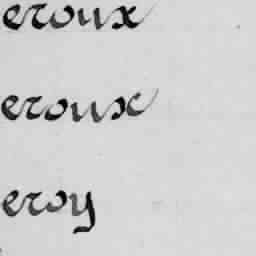 eroux
eroux
eroy